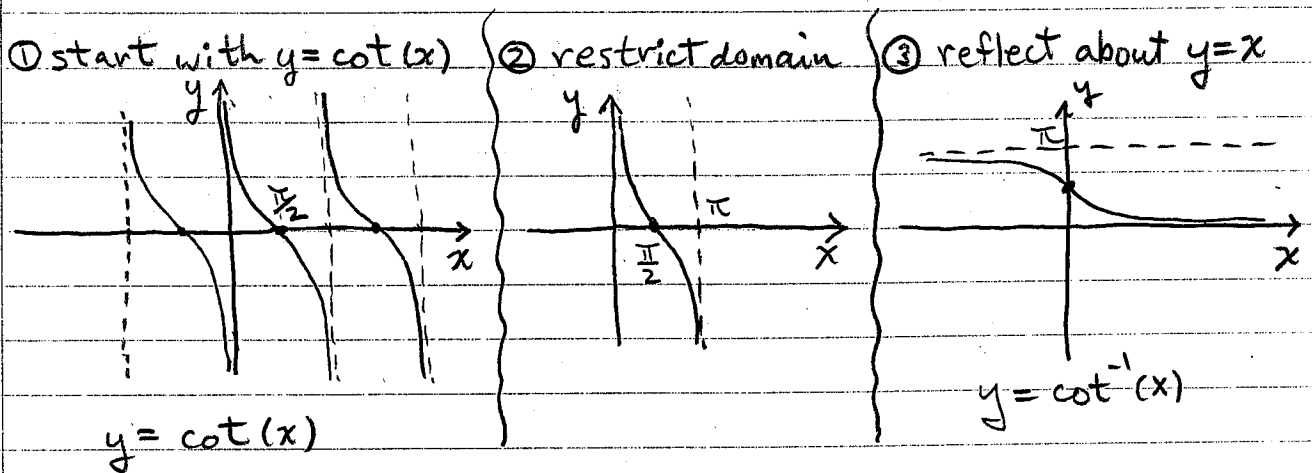 ① start with y = cot (x)
y
π/2
x
y = cot (x)
② restrict domain
y
π
π/2
x
③ reflect about y=x
y
π
x
y = cot⁻¹(x)